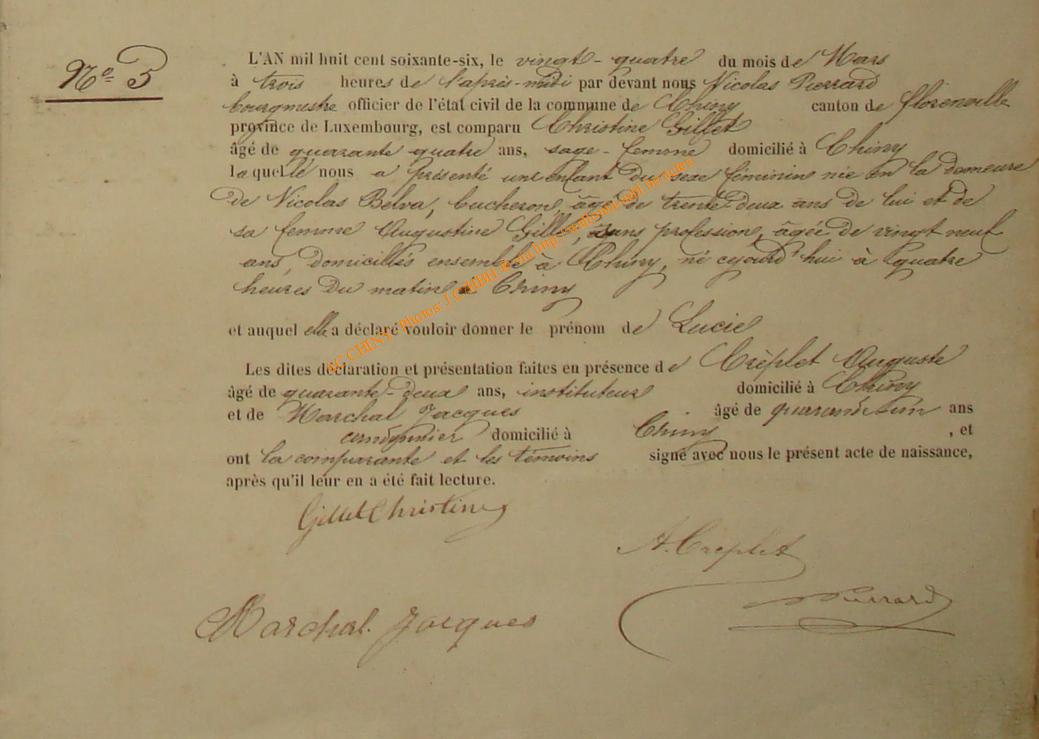 N° 5
L'AN mil huit cent soixante-six, le vingt-quatre du mois de Mars
à trois heures de l'après-midi par devant nous Nicolas Pierrard
bourgmestre officier de l'état civil de la commune de Chiny canton de florenville
province de Luxembourg, est comparu Christine Gillet
âgé de quarante-quatre ans, sage-femme domicilié à Chiny
laquelle nous a présenté un enfant du sexe féminin née en la demeure
de Nicolas Belva, bucheron, âgé de trente-deux ans de lui et de
sa femme Augustine Gillet, sans profession, âgée de vingt neuf
ans, domiciliés ensemble à Chiny, né cejourd'hui à quatre
heures du matin à Chiny
et auquel elle a déclaré vouloir donner le prénom de Lucie
Les dites déclaration et présentation faites en présence de Crèplet Auguste
âgé de quarante-deux ans, instituteur domicilié à Chiny
et de Marchal Jacques âgé de quarante un ans
domicilié à Chiny, et
ont la comparante et les témoins signé avec nous le présent acte de naissance,
après qu'il leur en a été fait lecture.
Gillet Christine
A. Crèplet
Marchal Jacques
Pierrard
CHINY Photos J.C.HIBH